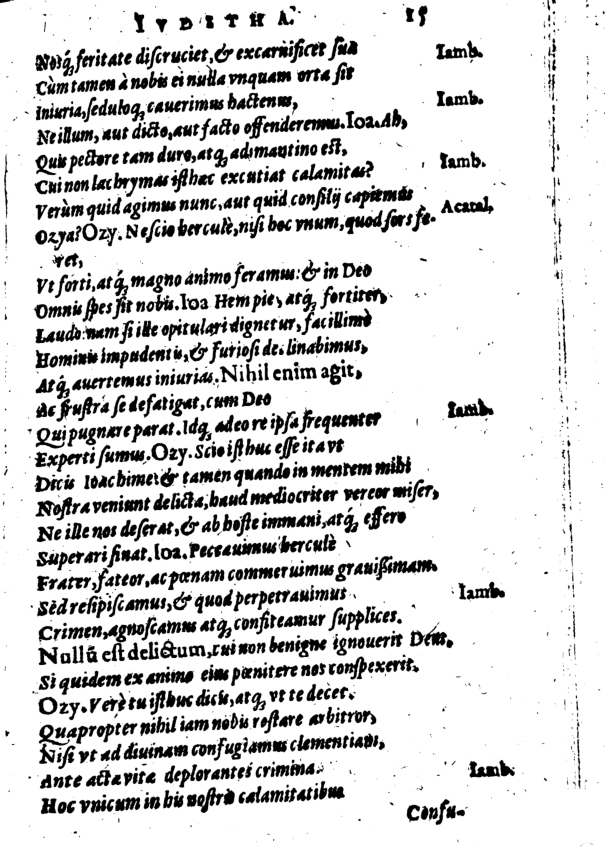 IVDITHA. 15
Nosq́; feritate discruciet, & excarnificet sua Iamb.
Cùm tamen à nobis ei nulla vnquam orta sit
Iniuria, seduloq́; cauerimus hactenus, Iamb.
Ne illum, aut dicto, aut facto offenderemus. Ioa. Ah,
Quis pectore tam duro, atq́; adamantino est,
Cui non lachrymas isthæc excutiat calamitas? Iamb.
Verùm quid agimus nunc, aut quid consilij capiemus
Ozya? Ozy. Nescio herculè, nisi hoc vnum, quod fors fe- Acatal,
ret,
Vt forti, atq́; magno animo feramus: & in Deo
Omnis spes sit nobis. Ioa Hem pie, atq́; fortiter,
Laudo: nam si ille opitulari dignetur, facillimè
Hominis impudentis, & furiosi declinabimus,
Atq́; auertemus iniurias. Nihil enim agit,
Ac frustra se defatigat, cum Deo
Qui pugnare parat. Idq́; adeo re ipsa frequenter Iamb.
Experti sumus. Ozy. Scio isthuc esse ita vt
Dicis Ioachime: & tamen quando in mentem mihi
Nostra veniunt delicta, haud mediocriter vereor miser,
Ne ille nos deserat, & ab hoste immani, atq́; effero
Superari sinat. Ioa. Peccauimus herculè
Frater, fateor, ac pœnam commeruimus grauißimam.
Sèd resipiscamus, & quod perpetrauimus Iamb.
Crimen, agnoscamus atq́; confiteamur supplices.
Nullũ est delictum, cui non benigne ignouerit Deus,
Si quidem ex animo eius pœnitere nos conspexerit.
Ozy. Verè tu isthuc dicis, atq́; vt te decet.
Quapropter nihil iam nobis restare arbitror,
Nisi vt ad diuinam confugiamus clementiam,
Ante acta vita deplorantes crimina. Iamb.
Hoc vnicum in his nostris calamitatibus
Confu-